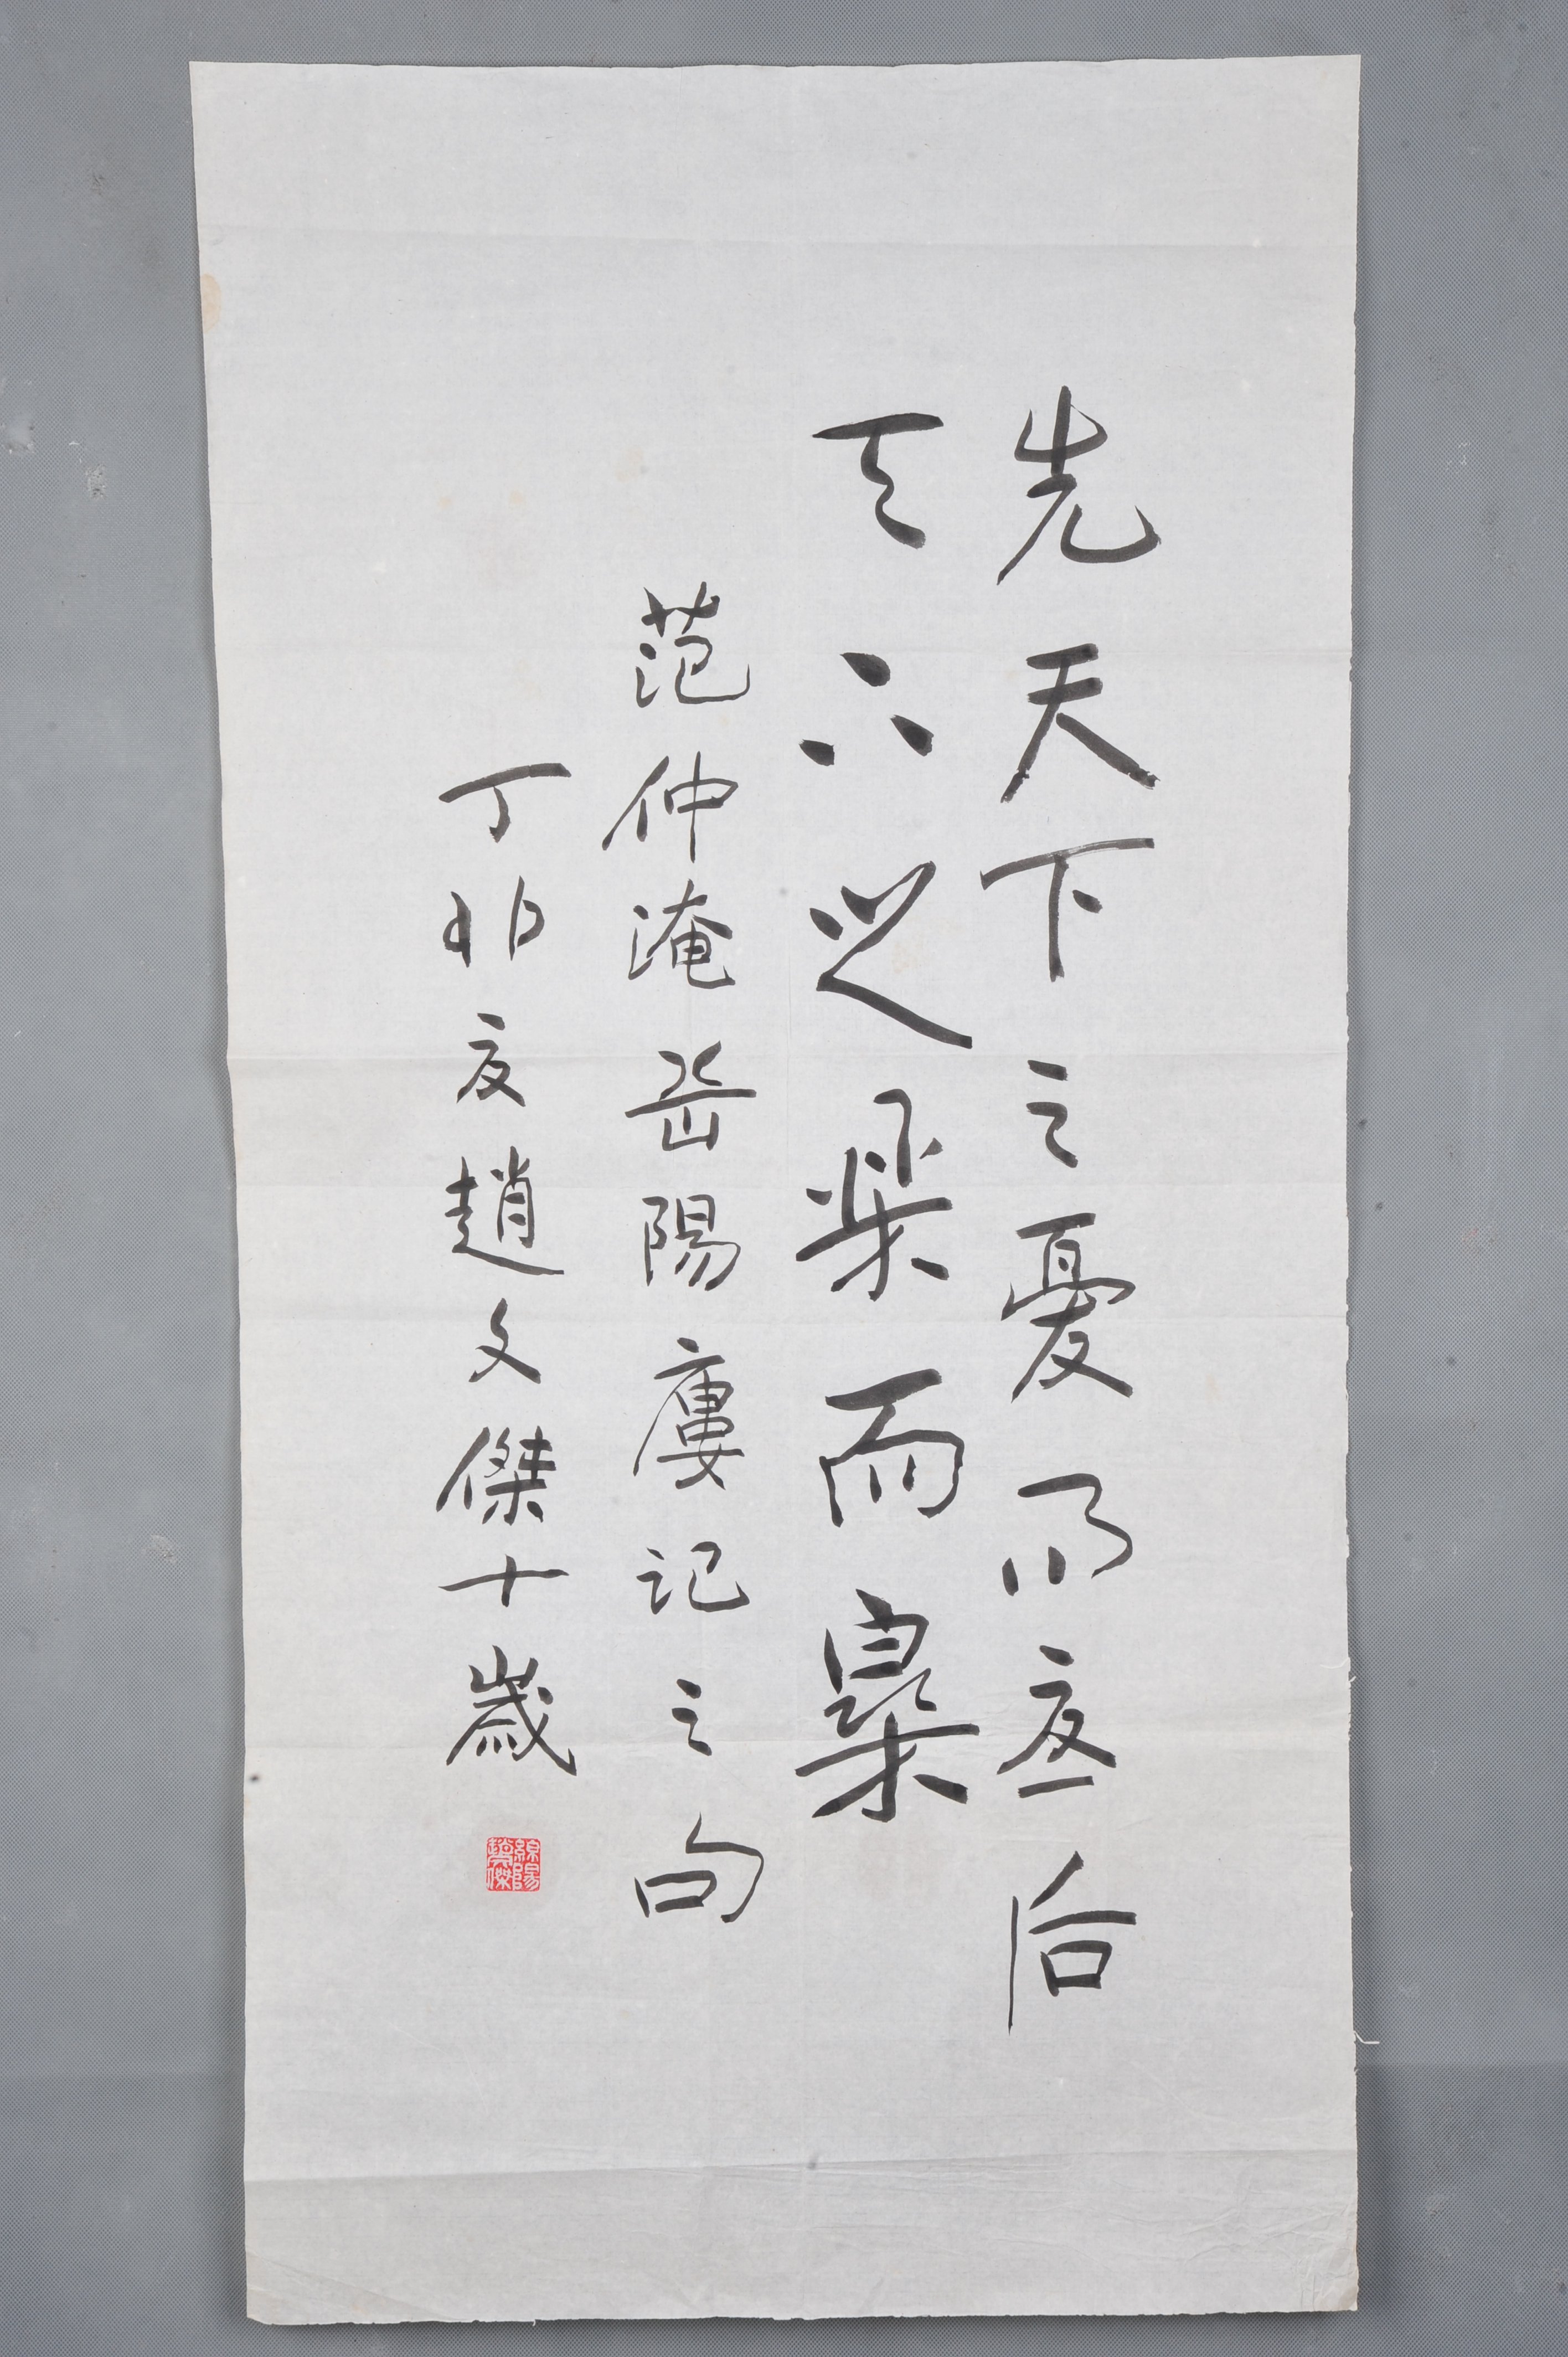 先天下之憂而憂后
天下之樂而樂
范仲淹岳陽廔記之句
丁卯夏趙文傑十歲
綿陽趙傑